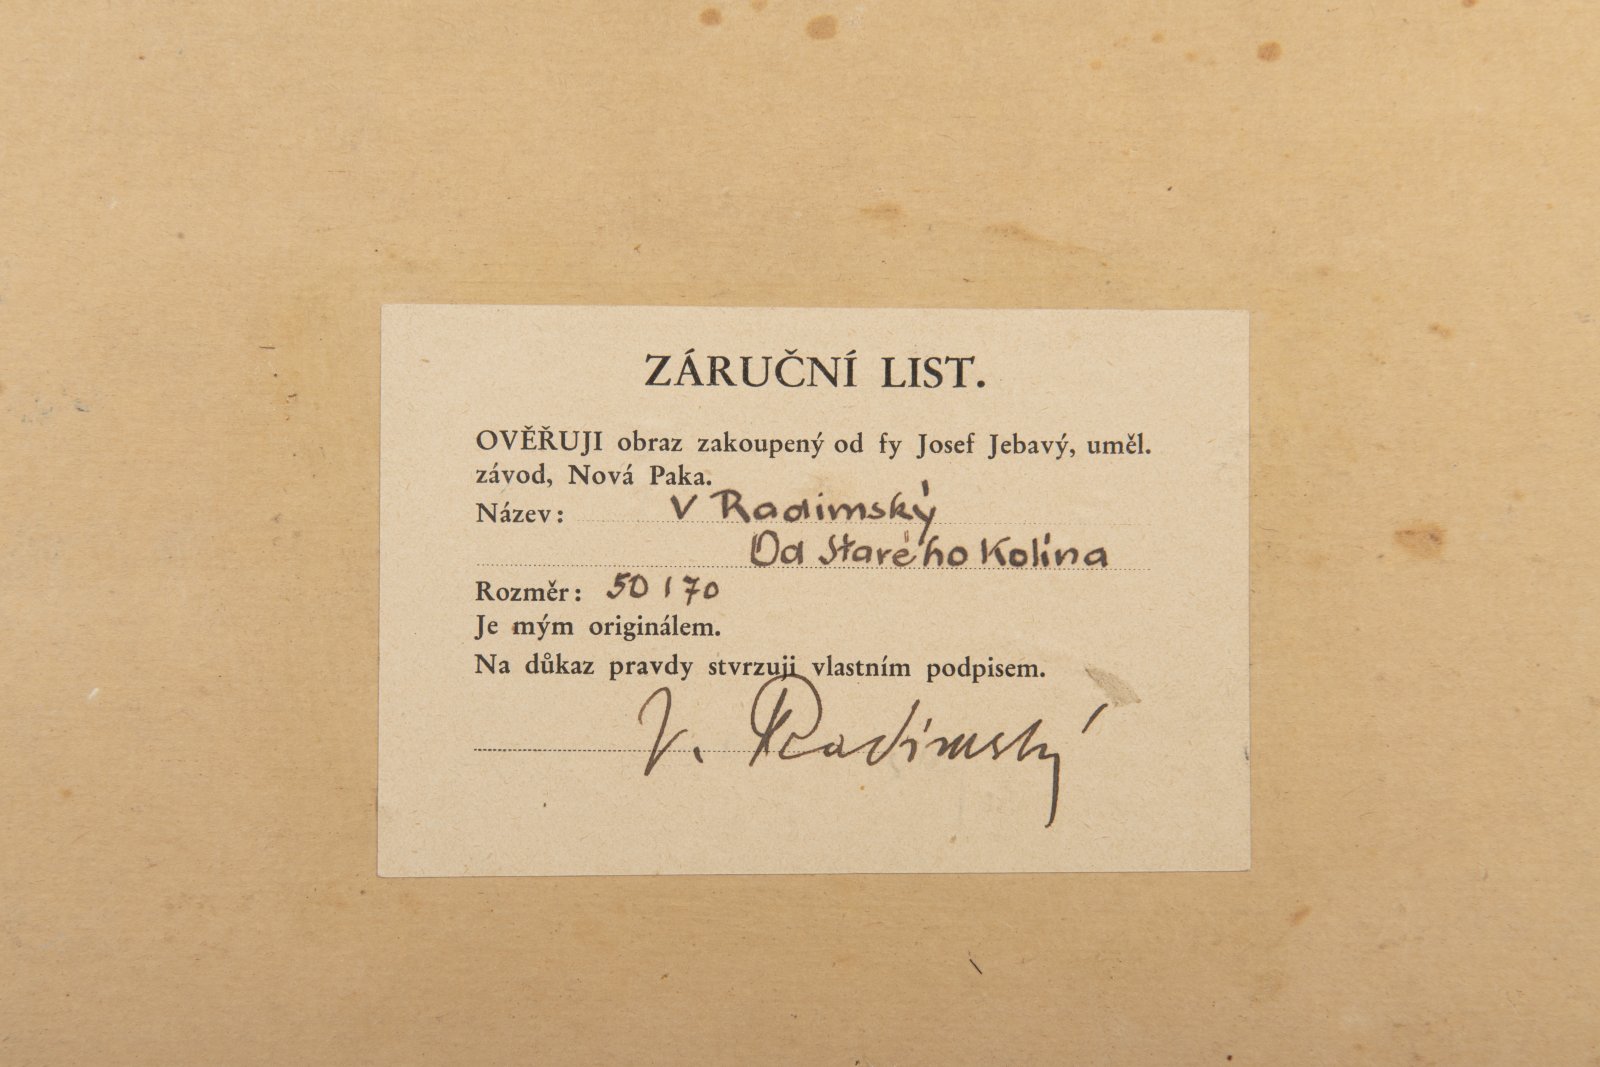 ZÁRUČNÍ LIST.
OVĚŘUJI obraz zakoupený od fy Josef Jebavý, uměl.
závod, Nová Paka.
Název: V Radimský
Od Starého Kolína
Rozměr: 50 / 70
Je mým originálem.
Na důkaz pravdy stvrzuji vlastním podpisem.
V. Radimský